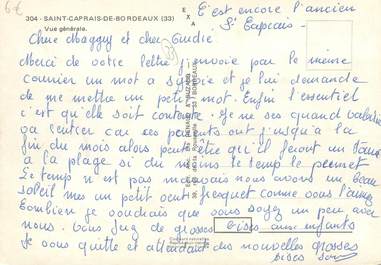 6€
304 - SAINT-CAPRAIS-DE-BORDEAUX (33)
Vue générale.
C'est encore l'ancien
St Caprais.
Chere Magguy et cher Andre
Merci de votre lettre j'envoie par le meme
courrier un mot a Sylvie et je lui demande
de me mettre un petit mot. Enfin l'essentiel
c'est qu'elle soit contente. Je ne sais quand
va rentrer car ses parents ont jusqu'a la
fin du mois alors peut être qu'il feront un
a la plage si du moins le temp le permet
Le temp n'est pas mauvais nous avons un beau
soleil mes un petit vent fresquet comme vous l'aimez
Combien je voudrais que vous soyez un peu avec
nous. Vous de grosses bises aux enfants
Je vous quitte et attendant des nouvelles grosses
bises